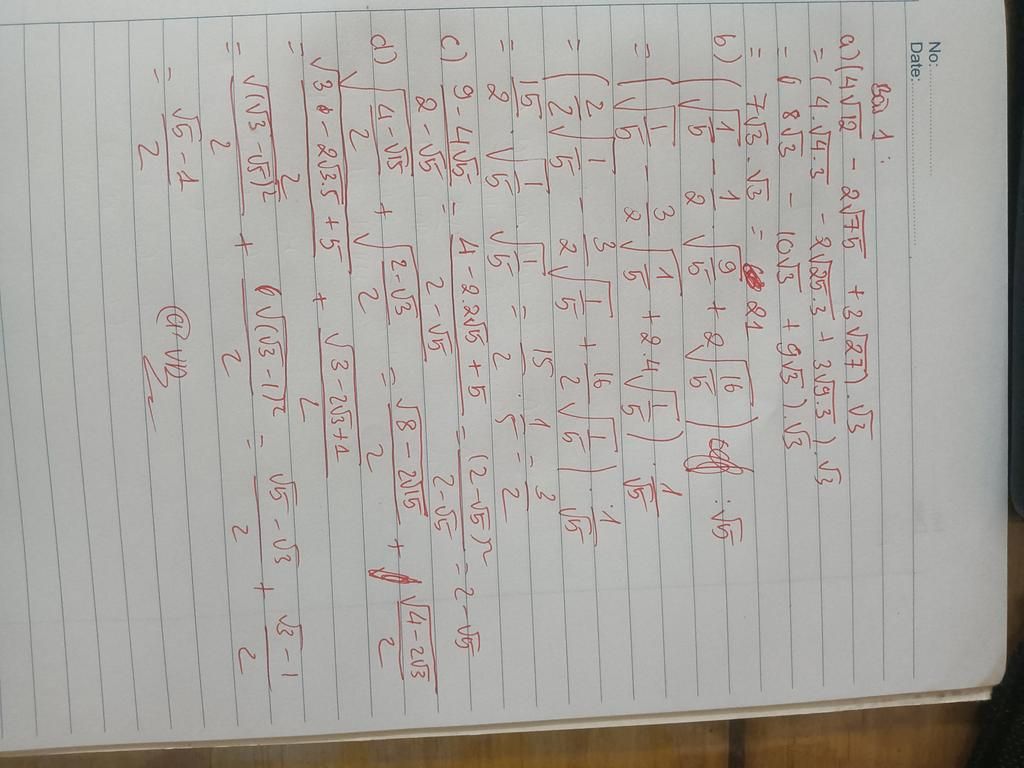 No:
Date:
Bài 1:
a) (4√12 - 2√75 + 3√27).√3
= (4.√4.3 - 2√25.3 + 3√9.3).√3
= (8√3 - 10√3 + 9√3).√3
= 7√3.√3 = 21
b) (√(1/5) - 1/2.√(9/5) + 2√(16/5)) : √5
= (√(1/5) - 3/2√(1/5) + 2.4√(1/5)) . 1/√5
= (2/2√(1/5) - 3/2√(1/5) + 16/2√(1/5)) . 1/√5
= 15/2 √(1/5) √(1/5) = 15/2 . 1/5 = 3/2
c) (9 - 4√5)/(2 - √5) = (4 - 2.2√5 + 5)/(2 - √5) = (2 - √5)²/(2 - √5) = 2 - √5
d) √((4 - √15)/2) + √((2 - √3)/2) = √(8 - 2√15)/2 + √(4 - 2√3)/2
= √(3 - 2√3.5 + 5)/2 + √(3 - 2√3 + 1)/2
= √(√3 - √5)²/2 + √(√3 - 1)²/2 = (√5 - √3)/2 + (√3 - 1)/2
= (√5 - 1)/2